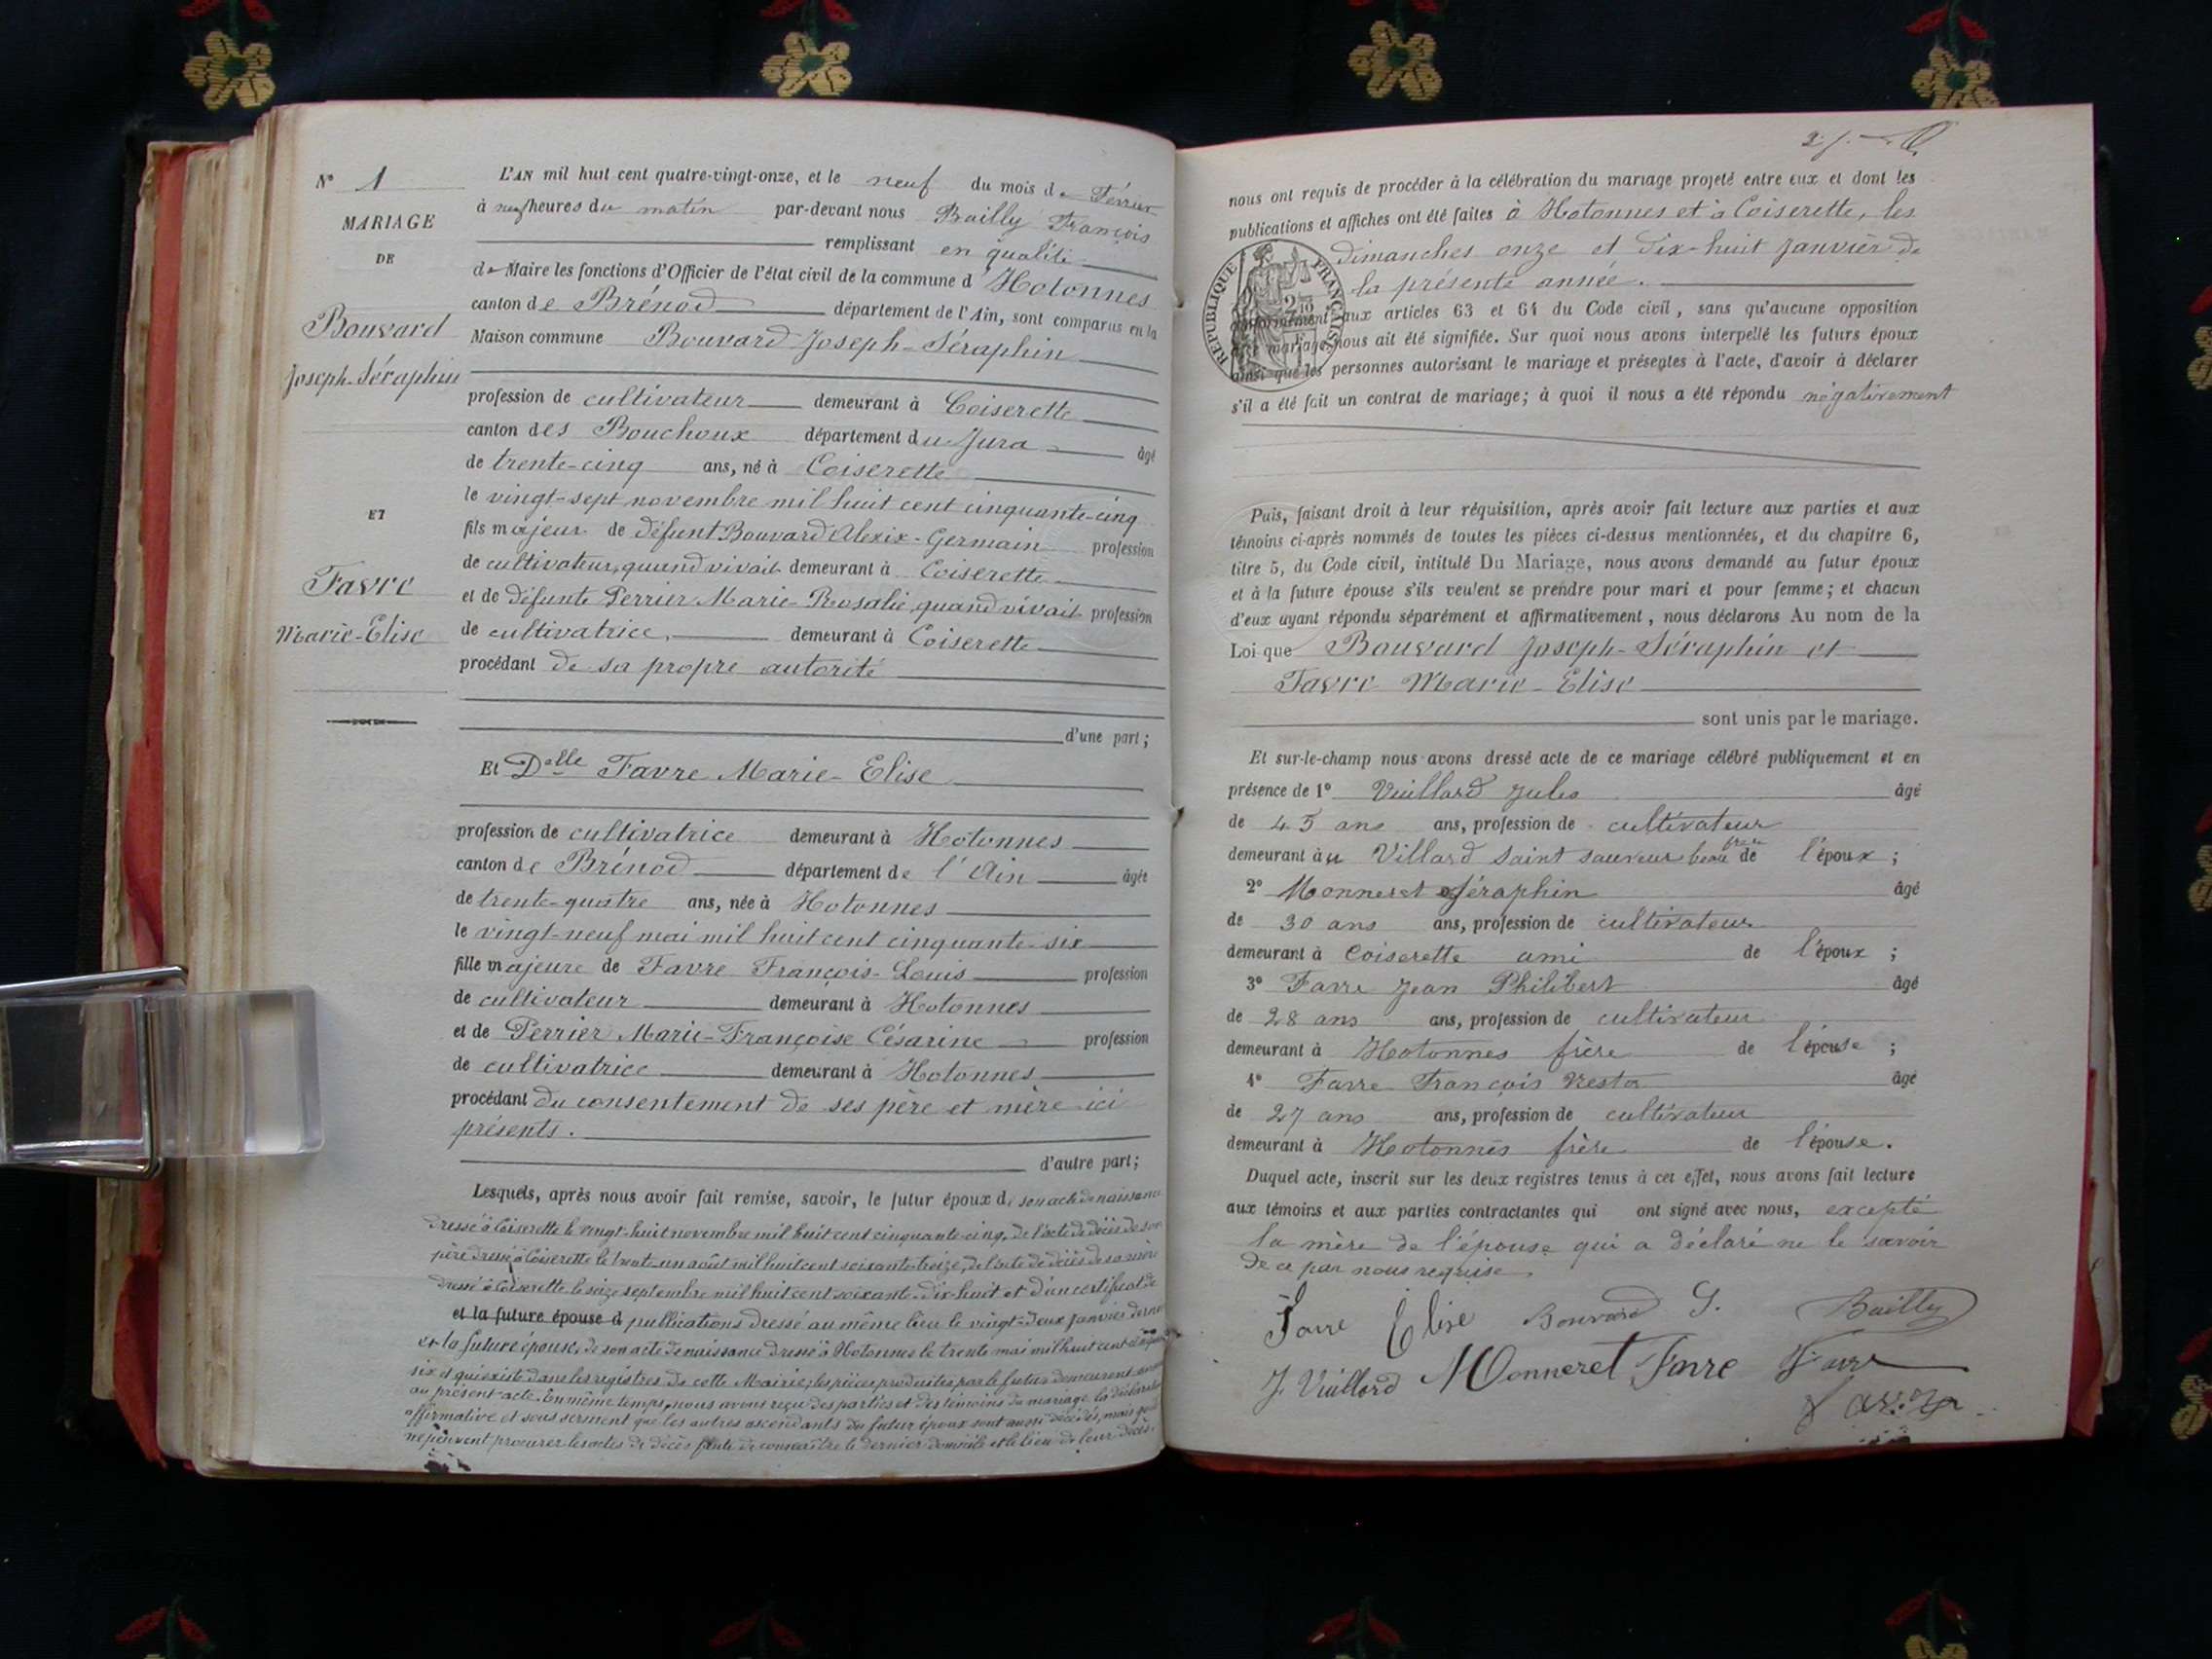 N° 1
MARIAGE
DE
Bouvard
Joseph-Séraphin
ET
Favre
Marie-Elise
L'AN mil huit cent quatre-vingt-onze, et le neuf du mois de Février
à neuf heures du matin par-devant nous Bailly François
remplissant en qualité
de Maire les fonctions d'Officier de l'état civil de la commune d'Hotonnes
canton de Brénod département de l'Ain, sont comparus en la
Maison commune Bouvard Joseph-Séraphin
profession de cultivateur demeurant à Coiserette
canton des Bouchoux département du Jura âgé
de trente-cinq ans, né à Coiserette
le vingt-sept novembre mil huit cent cinquante-cinq
fils majeur de défunt Bouvard Alexix-Germain profession
de cultivateur, quand vivait demeurant à Coiserette
et de défunte Perrier Marie-Rosalie, quand vivait profession
de cultivatrice, demeurant à Coiserette
procédant de sa propre autorité
d'une part;
Et Delle Favre Marie-Elise
profession de cultivatrice demeurant à Hotonnes
canton de Brénod département de l'Ain âgée
de trente-quatre ans, née à Hotonnes
le vingt-neuf mai mil huit cent cinquante-six
fille majeure de Favre François-Louis profession
de cultivateur demeurant à Hotonnes
et de Perrier Marie-Françoise Césarine profession
de cultivatrice demeurant à Hotonnes
procédant du consentement de ses père et mère ici
présents.
d'autre part;
Lesquels, après nous avoir fait remise, savoir, le futur époux de son acte de naissance
dressé à Coiserette le vingt-huit novembre mil huit cent cinquante-cinq, de l'acte de décès de son
père dressé à Coiserette le trente-un août mil huit cent soixante-treize, de l'acte de décès de sa mère
dressé à Coiserette le seize septembre mil huit cent soixante-dix-huit et d'un certificat de
et la future épouse d publications dressé au même lieu le vingt-deux janvier dernier
et la future épouse, de son acte de naissance dressé à Hotonnes le trente mai mil huit cent cinquante
six et qui existe dans les registres de cette Mairie; les pièces produites par le futur demeurent annexées
au présent acte. En même temps, nous avons reçu des parties et des témoins du mariage la déclaration
affirmative et sous serment que les autres ascendants du futur époux sont aussi décédés, mais qu'ils
ne peuvent procurer les actes de décès faute de connaître le dernier domicile et le lieu de leur décès.
nous ont requis de procéder à la célébration du mariage projeté entre eux et dont les
publications et affiches ont été faites à Hotonnes et à Coiserette, les
dimanches onze et dix-huit janvier de
la présente année.
RÉPUBLIQUE FRANÇAISE
conformément aux articles 63 et 64 du Code civil, sans qu'aucune opposition
mariage nous ait été signifiée. Sur quoi nous avons interpellé les futurs époux
ainsi que les personnes autorisant le mariage et présentes à l'acte, d'avoir à déclarer
s'il a été fait un contrat de mariage; à quoi il nous a été répondu négativement
Puis, faisant droit à leur réquisition, après avoir fait lecture aux parties et aux
témoins ci-après nommés de toutes les pièces ci-dessus mentionnées, et du chapitre 6,
titre 5, du Code civil, intitulé Du Mariage, nous avons demandé au futur époux
et à la future épouse s'ils veulent se prendre pour mari et pour femme; et chacun
d'eux ayant répondu séparément et affirmativement, nous déclarons Au nom de la
Loi que Bouvard Joseph-Séraphin et
Favre Marie-Elise
sont unis par le mariage.
Et sur-le-champ nous avons dressé acte de ce mariage célébré publiquement et en
présence de 1° Vuillard Jules âgé
de 45 ans ans, profession de cultivateur
demeurant à u Villard Saint Sauveur beau frère de l'époux;
2° Monneret Séraphin âgé
de 30 ans ans, profession de cultivateur
demeurant à Coiserette ami de l'époux;
3° Favre Jean Philibert âgé
de 28 ans ans, profession de cultivateur
demeurant à Hotonnes frère de l'épouse;
4° Favre François âgé
de 27 ans ans, profession de cultivateur
demeurant à Hotonnes frère de l'épouse.
Duquel acte, inscrit sur les deux registres tenus à cet effet, nous avons fait lecture
aux témoins et aux parties contractantes qui ont signé avec nous, excepté
la mère de l'épouse qui a déclaré ne le savoir
de ce par nous requise
Favre Elise Bouvard S. Bailly
J Vuillard Monneret Favre Favre
Favre